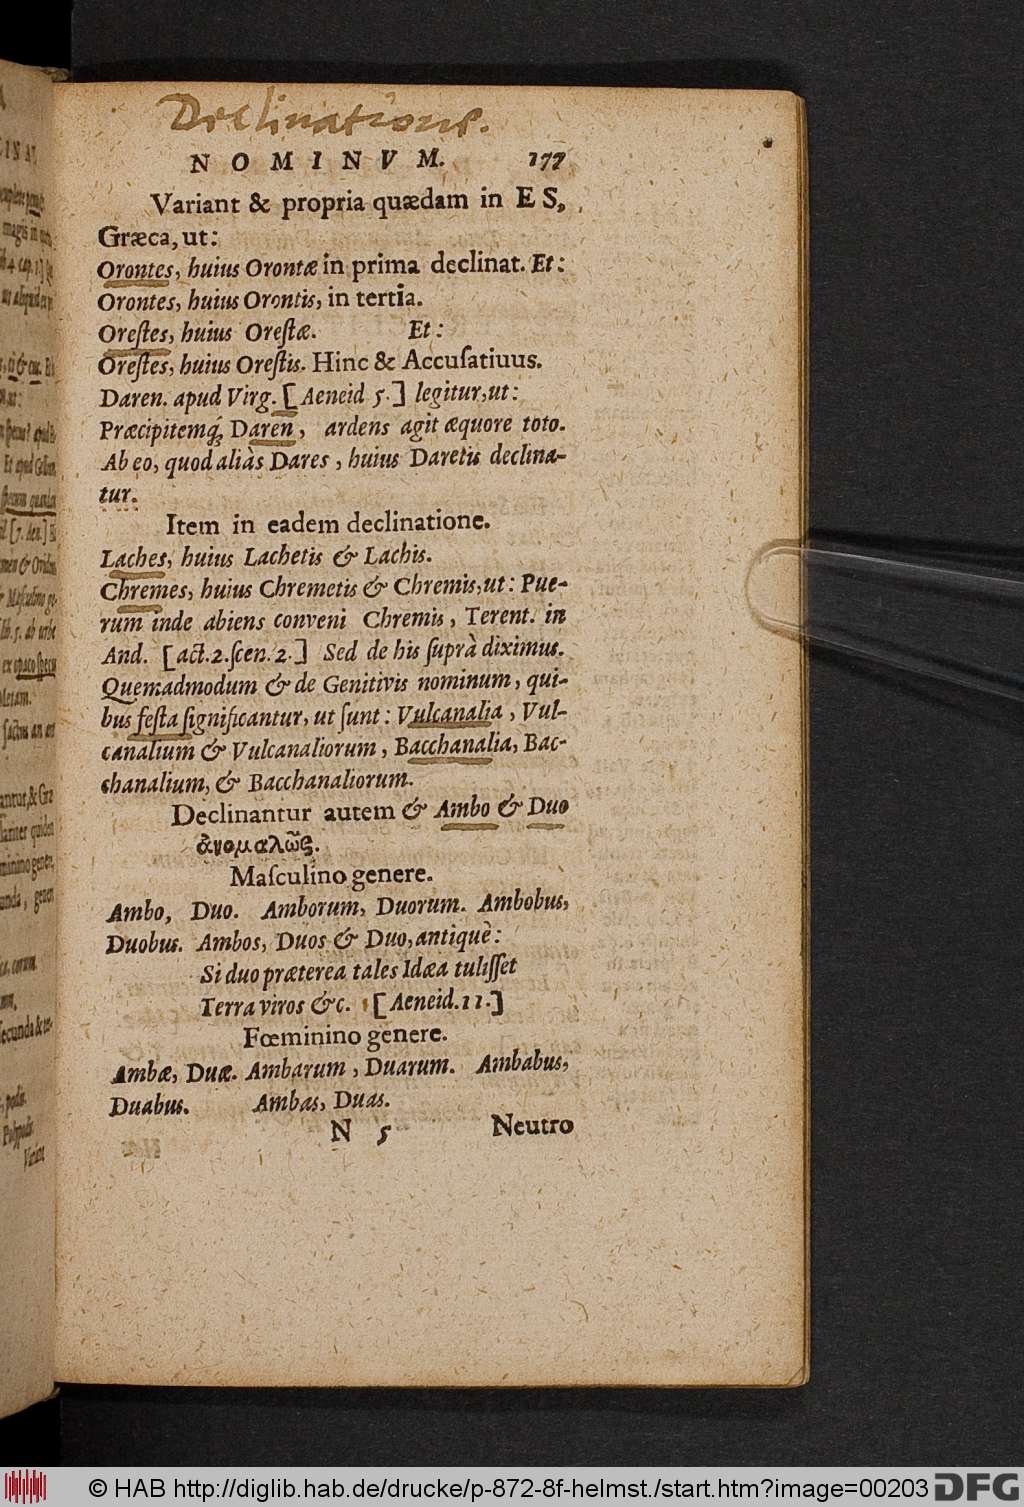 Declinatione.
NOMINVM. 177
Variant & propria quædam in ES,
Græca, ut:
Orontes, huius Orontæ in prima declinat. Et:
Orontes, huius Orontis, in tertia.
Oreſtes, huius Oreſtæ. Et:
Oreſtes, huius Oreſtis. Hinc & Accuſativus.
Daren. apud Virg. [Aeneid 5.] legitur, ut:
Præcipitemq́; Daren, ardens agit æquore toto.
Ab eo, quod aliàs Dares, huius Daretis declina-
tur.
Item in eadem declinatione.
Laches, huius Lachetis & Lachis.
Chremes, huius Chremetis & Chremis, ut: Pue-
rum inde abiens conveni Chremis, Terent. in
And. [act. 2. ſcen. 2.] Sed de his ſuprà diximus.
Quemadmodum & de Genitivis nominum, qui-
bus feſta ſignificantur, ut ſunt: Vulcanalia, Vul-
canalium & Vulcanaliorum, Bacchanalia, Bac-
chanalium, & Bacchanaliorum.
Declinantur autem & Ambo & Duo
ἀνομαλῶς.
Maſculino genere.
Ambo, Duo. Amborum, Duorum. Ambobus,
Duobus. Ambos, Duos & Duo, antiquè:
Si duo præterea tales Idæa tuliſſet
Terra viros &c. [Aeneid. 11.]
Fœminino genere.
Ambæ, Duæ. Ambarum, Duarum. Ambabus,
Duabus. Ambas, Duas.
N 5 Neutro
© HAB http://diglib.hab.de/drucke/p-872-8f-helmst./start.htm?image=00203 DFG